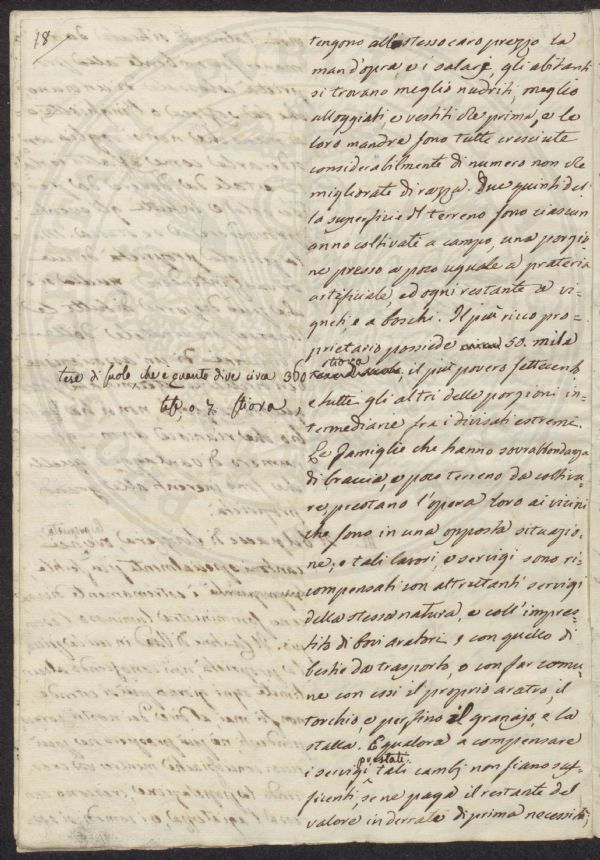 18
tengono allo stesso caro prezzo la
mand'opra, e i salarj, gli abitanti
si trovano meglio nudriti, meglio
alloggiati, e vestiti che prima, e le
loro mandre sono tutte cresciute
considerabilmente di numero non che
migliorate di razza. Due quinti del
la superficie del terreno sono ciascun
anno coltivate a campo, una porzio
ne presso a poco uguale a prateria
artificiale, ed ogni restante a vi-
gneti, e a boschi. Il più ricco pro-
prietario possiede 50. mila
tese di suolo, che è quanto dire circa 300
stiora, il più povero settecento
tese, o 7. stiora,
e tutte gli altri delle porzioni in-
termediarie fra i divisati estremi.
Le famiglie che hanno sovrabbondanza
di braccia, e poco terreno da coltiva-
re, prestano l'opera loro ai vicini
che sono in una opposta situazio-
ne; e tali lavori, e servigi sono ri-
compensati con altrettanti servigi
della stessa natura, e coll'impres-
tito di bovi aratori, e con quello di
bestie da trasporto, o con far comu-
ne con essi il proprio aratro, il
torchio, e perfino il granajo, e la
stalla. E qualora a compensare
i servigi prestati tali cambj non siano suf-
ficienti, se ne paga il restante del
valore in derrate di prima necessità,